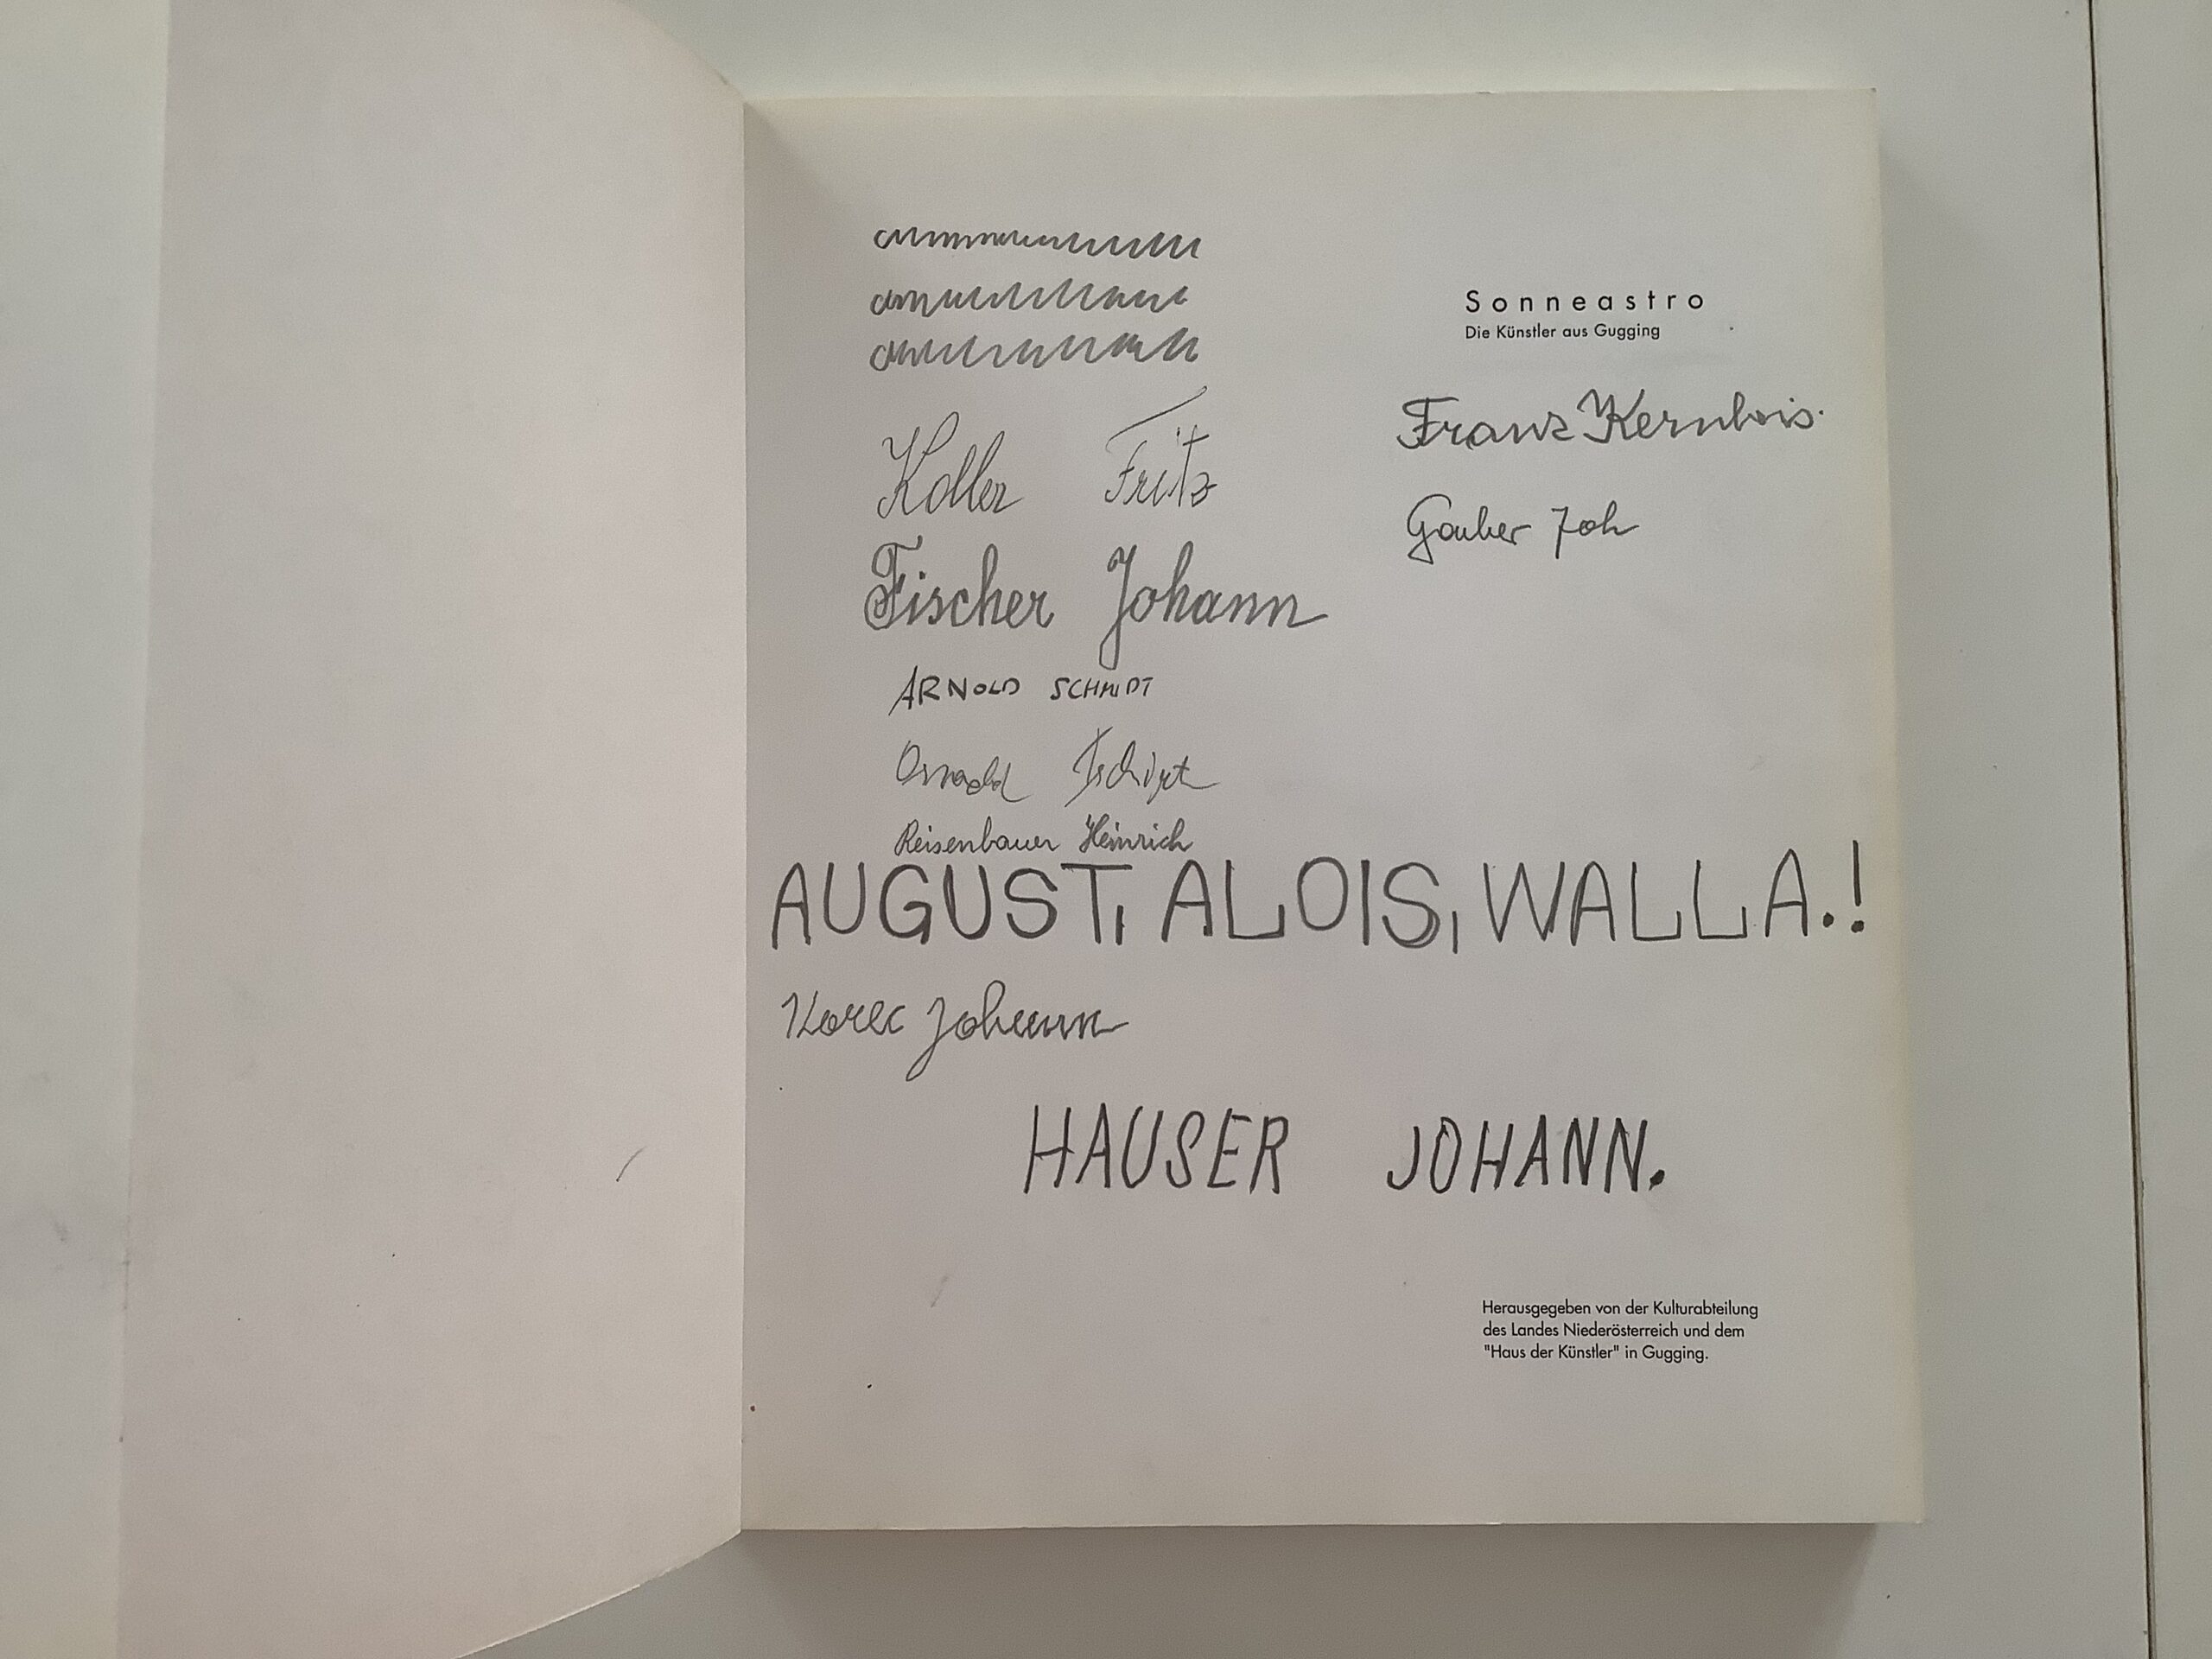 Sonneastro
Die Künstler aus Gugging
Franz Kernbeis.
Koller Fritz
Garber Joh
Fischer Johann
ARNOLD SCHMIDT
Oswald Tschirtner
Reisenbauer Heinrich
AUGUST, ALOIS, WALLA.!
Korec Johann
HAUSER JOHANN.
Herausgegeben von der Kulturabteilung
des Landes Niederösterreich und dem
"Haus der Künstler" in Gugging.